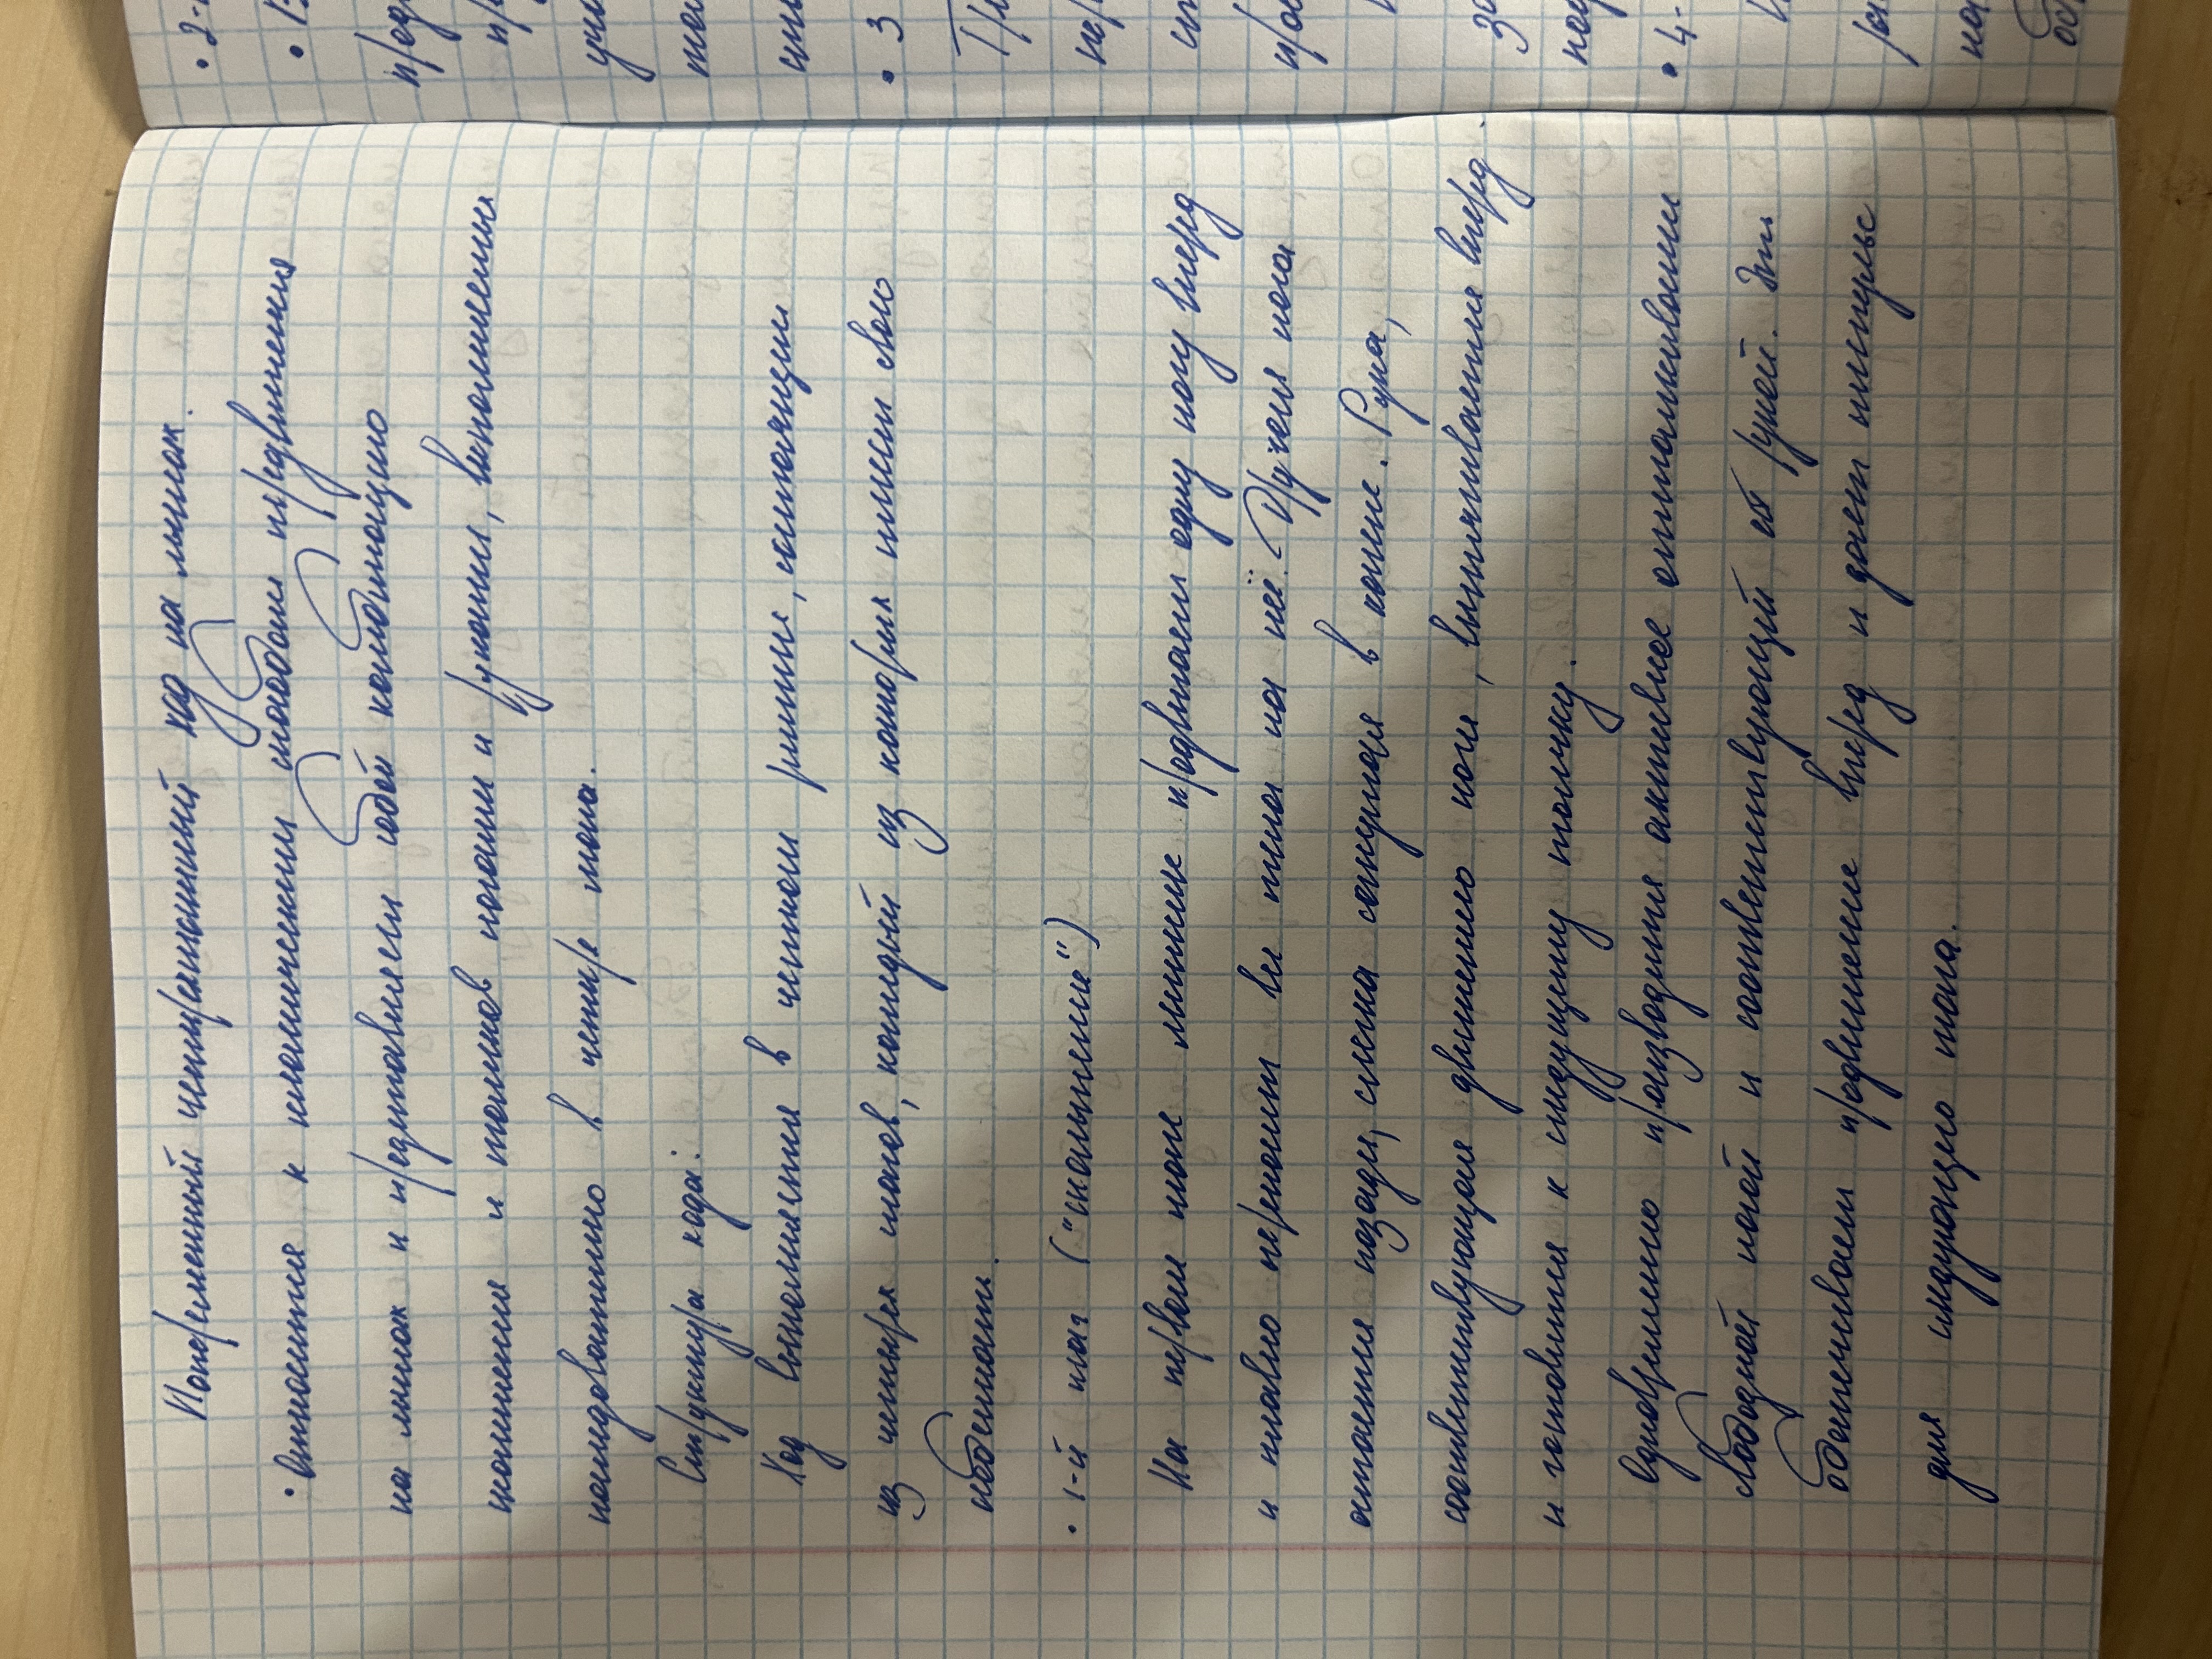 Попеременный четырёхшажный ход на лыжах.
• Относится к классическим способам передвижения
на лыжах и представляет собой комбинацию
скольжения и толчков ногами и руками, выполняемых
последовательно в четыре шага.
Структура хода:
Ход выполняется в четком ритме, состоящем
из четырёх шагов, каждый из которых имеет свою
особенность.
• 1-й шаг ("скольжение")
На первом шаге лыжник продвигает одну ногу вперед
и плавно переносит вес тела на неё. Другая нога
остаётся позади, слегка согнутая в колене. Рука,
соответствующая движению ноги, вытягивается вперед
и готовится к следующему толчку.
Одновременно производится активное отталкивание
свободной ногой и соответствующей ей рукой. Это
обеспечивает продвижение вперед и даёт импульс
для следующего шага.
• 2-
• 3
• 4-